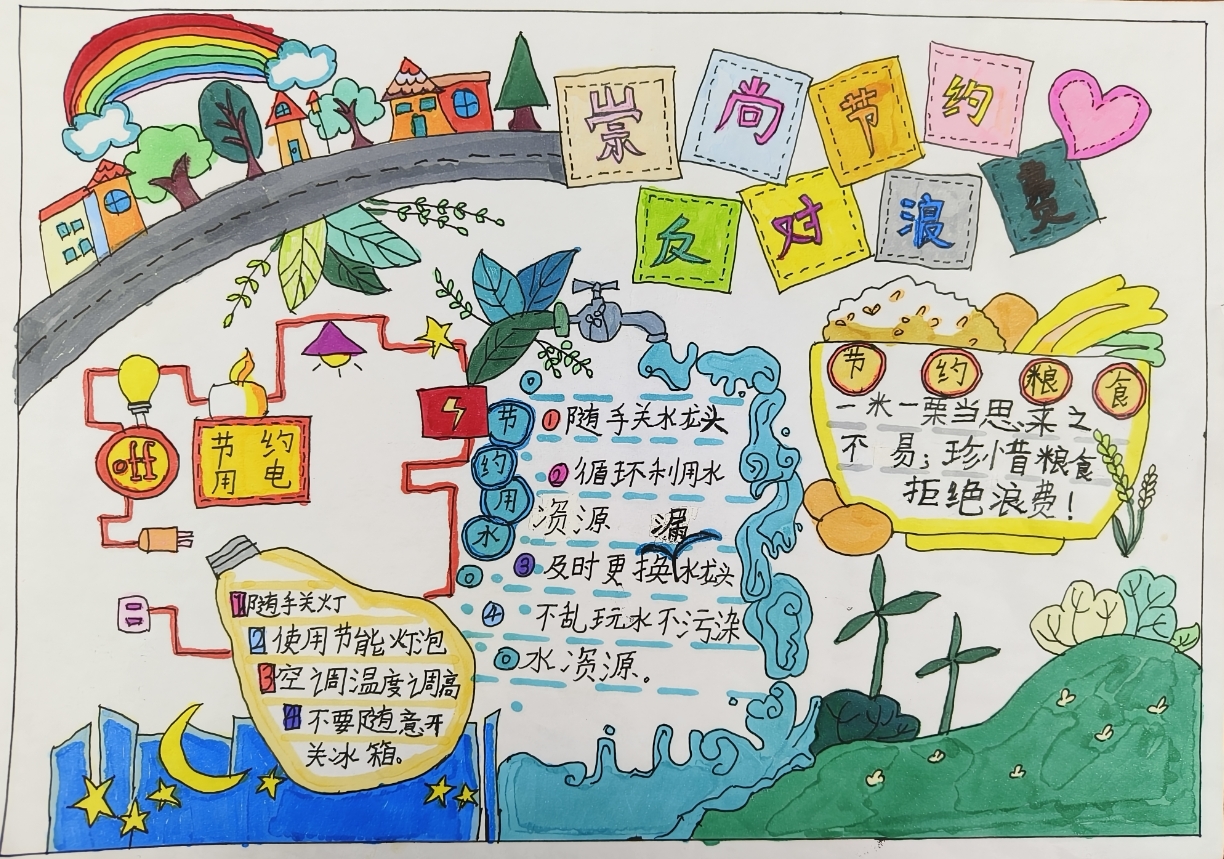 崇尚节约
反对浪费
off
节约
用电
1随手关灯
2使用节能灯泡
3空调温度调高
4不要随意开
关冰箱。
节约用水
①随手关水龙头
②循环利用水
资源
漏
③及时更换水龙头
④不乱玩水不污染
水资源。
节约粮食
一米一栗当思来之
不易；珍惜粮食
拒绝浪费！